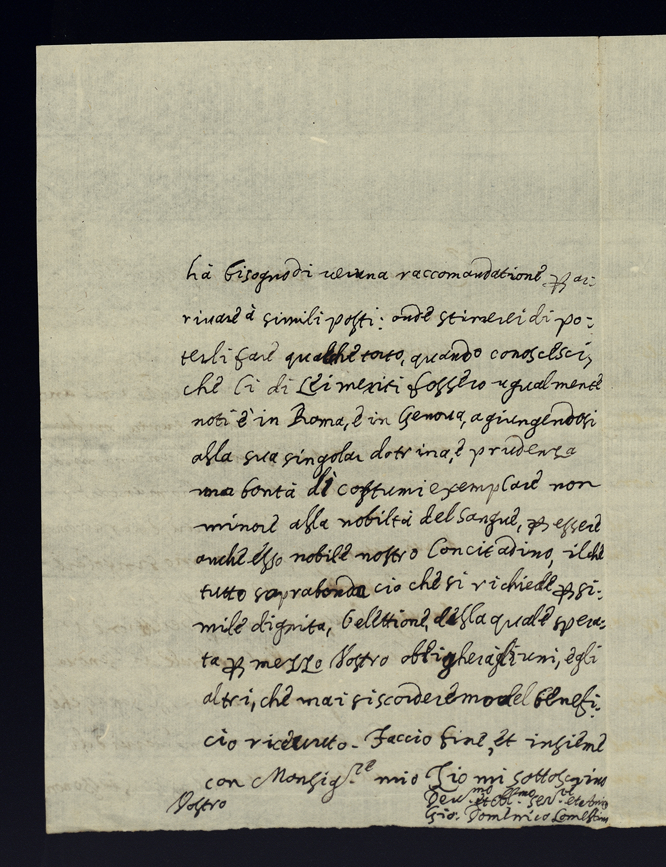 hà bisogno di veruna raccomandatione ꝑ ar=
rivare à simili posti: onde stimerei di po=
terli fare qualche torto, quando conoscessi,
che li di Lei meriti fossero ugualmente
noti è in Roma, è in Genova, agiungendosi
alla sua singolar dotrina, è prudenza
una bontà di costumi exemplare non
minore alla nobiltà del sangue, ꝑ essere
anche esso nobile nostro Concitadino, il che
tutto soprabonda ciò che si richiede ꝑ si=
mile dignita, l'elettione, della quale spera=
ta ꝑ mezzo Vostro obligherà gli uni, e gli
altri, che mai si scorderemo del benefi=
cio riceuuto. Faccio fine, et insieme
con Monsig.re mio Zio mi sottoscrivo
Vostro
Deu.mo et Obl.mo Ser.re
Gio: Domenico